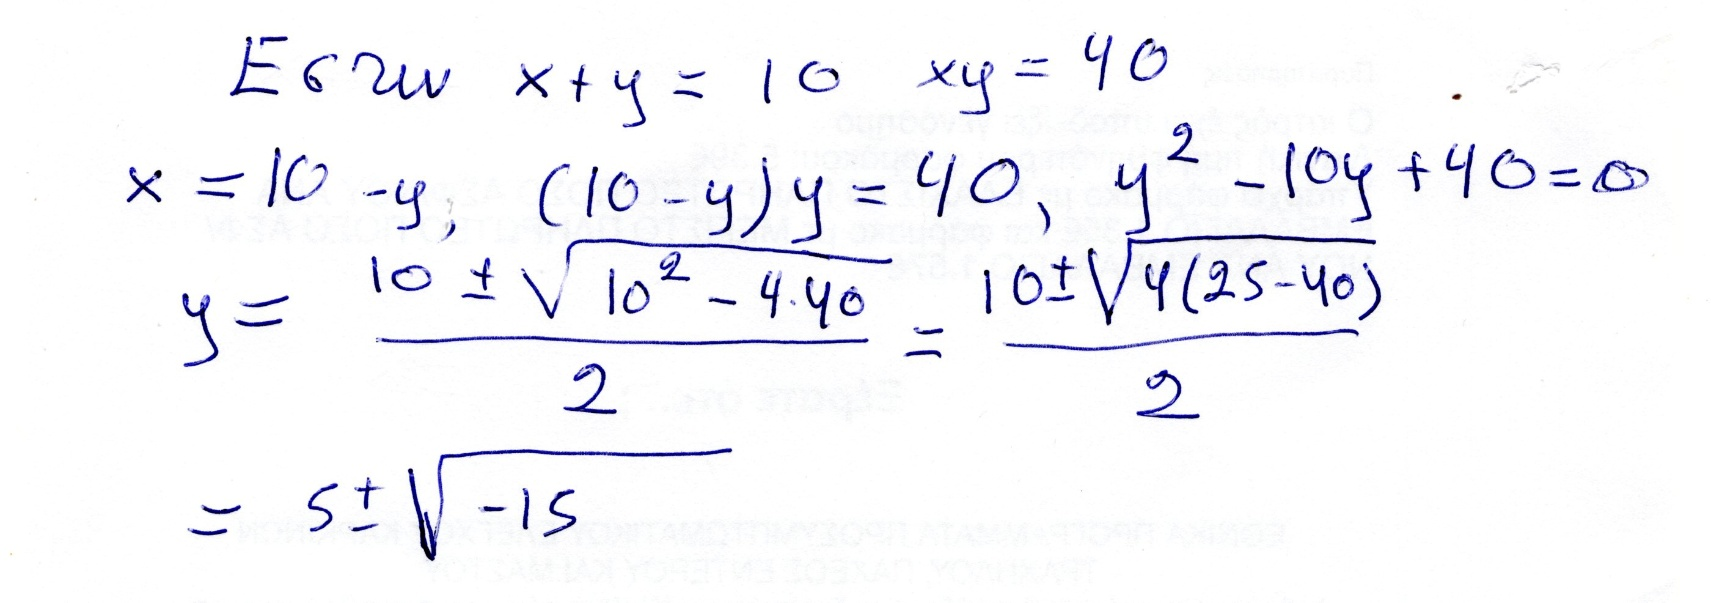 Εστω x+y = 10 xy = 40
x = 10 -y, (10-y)y = 40, y² -10y +40=0
y = (10 ± √(10² - 4·40))/2 = (10± √(4(25-40)))/2
= 5± √-15